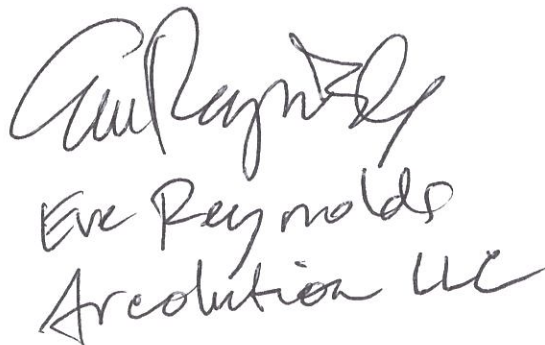 Eve Reynolds
Eve Reynolds
Arcolution LLC